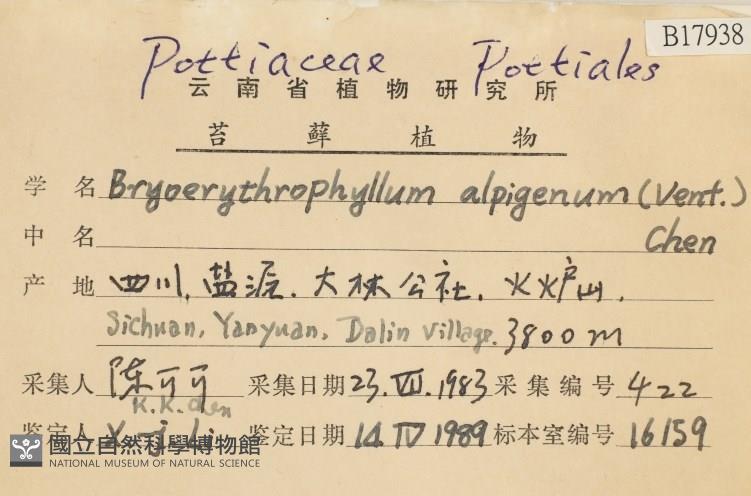 B17938
Pottiaceae Pottiales
云南省植物研究所
苔藓植物
学名 Bryoerythrophyllum alpigenum (Vent.)
中名 Chen
产地 四川, 盐源. 大林公社, 火炉山,
Sichuan, Yanyuan, Dalin Village. 3800m
采集人 陈可可 采集日期 23.VII.1983 采集编号 422
K.K.Chen
鉴定人 鉴定日期 14.IV 1989 标本室编号 16159
國立自然科學博物館
NATIONAL MUSEUM OF NATURAL SCIENCE